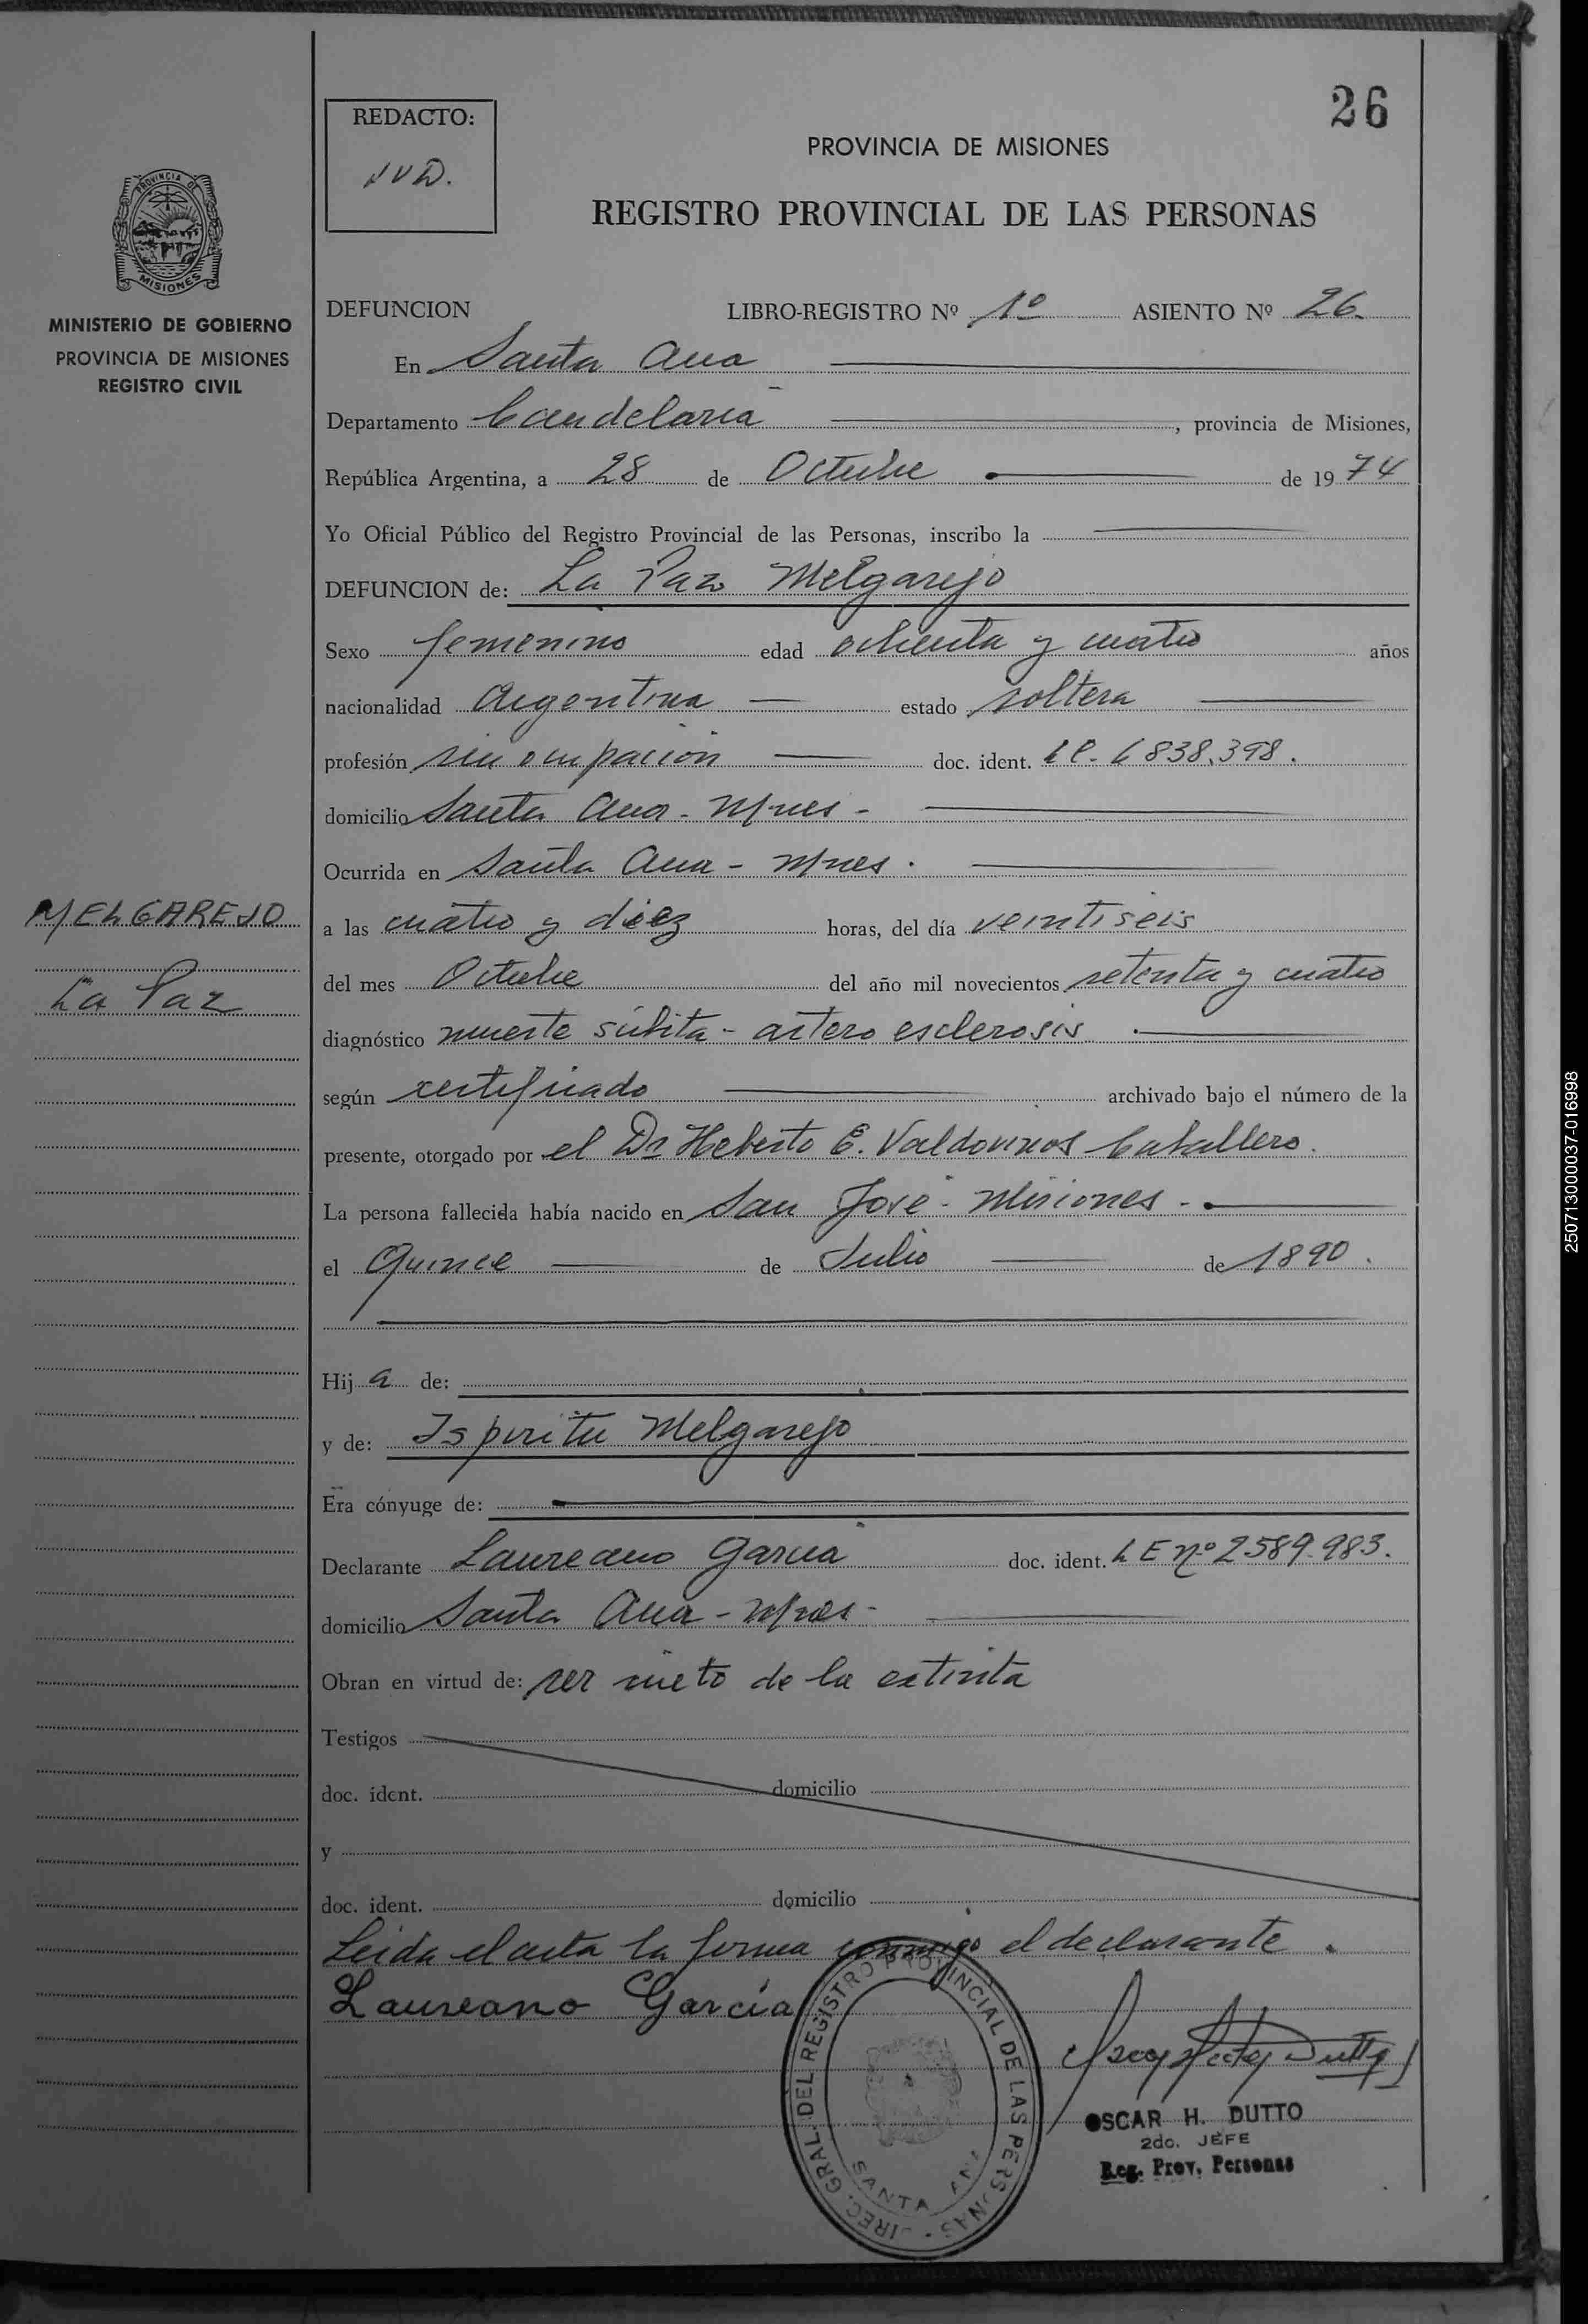 26
REDACTO:
PROVINCIA DE MISIONES
REGISTRO PROVINCIAL DE LAS PERSONAS
PROVINCIA DE
MISIONES
MINISTERIO DE GOBIERNO
PROVINCIA DE MISIONES
REGISTRO CIVIL
DEFUNCION LIBRO-REGISTRO Nº 1º ASIENTO Nº 26.
En Santa Ana
Departamento Candelaria, provincia de Misiones,
República Argentina, a 28 de Octubre de 1974
Yo Oficial Público del Registro Provincial de las Personas, inscribo la
DEFUNCION de: La Paz Melgarejo
Sexo femenino edad ochenta y cuatro años
nacionalidad Argentina estado soltera
profesión sin ocupación doc. ident. LC. 6838.398.
domicilio Santa Ana - Mnes -
Ocurrida en Santa Ana - Mnes.
MELGAREJO
La Paz
a las cuatro y diez horas, del día veintiseis
del mes Octubre del año mil novecientos setenta y cuatro
diagnóstico muerte súbita - artero esclerosis
según certificado archivado bajo el número de la
presente, otorgado por el Dr Heberto E. Valdovinos Caballero.
La persona fallecida había nacido en San José - Misiones -
el Quince de Julio de 1890.
Hija de:
y de: Ispiritu Melgarejo
Era cónyuge de:
Declarante Laureano Garcia doc. ident. L E nº 2589.983.
domicilio Santa Ana - Mnes -
Obran en virtud de: ser nieto de la extinta
Testigos
doc. ident. domicilio
y
doc. ident. domicilio
Leida el acta la firma conmigo el declarante.
Laureano García
DIREC. GRAL. DEL REGISTRO PROVINCIAL DE LAS PERSONAS
SANTA ANA
OSCAR H. DUTTO
2do. JEFE
Reg. Prov. Personas
250713000037-016998